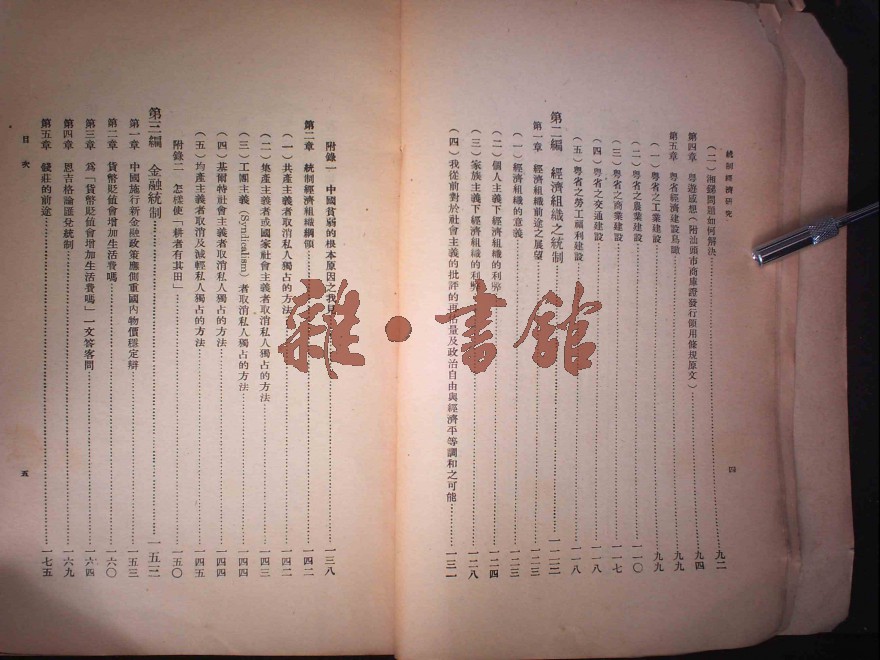 統制經濟研究
四
（二）湘銻問題如何解決…九二
第四章　粵遊感想（附汕頭市商庫證發行領用條規原文）…九四
第五章　粵省經濟建設鳥瞰…九九
（一）粵省之工業建設…九九
（二）粵省之農業建設…一一〇
（三）粵省之商業建設…一一七
（四）粵省之交通建設…一一八
（五）粵省之勞工福利建設…一一八
第二編　經濟組織之統制…一二三
第一章　經濟組織前途之展望…一二三
（一）經濟組織的意義…一二三
（二）個人主義下經濟組織的利弊…一二四
（三）家族主義下經濟組織的利弊…一二八
（四）我從前對於社會主義的批評的再估量及政治自由與經濟平等調和之可能…一三一
附錄一　中國貧弱的根本原因之我見…一三八
第二章　統制經濟組織綱領…一四二
（一）共產主義者取消私人獨占的方法…一四二
（二）集產主義者或國家社會主義者取消私人獨占的方法…一四三
（三）工團主義（Syndicalism）者取消私人獨占的方法…一四四
（四）基爾特社會主義者取消私人獨占的方法…一四四
（五）均產主義者取消及減輕私人獨占的方法…一四五
附錄二　怎樣使「耕者有其田」…一五〇
第三編　金融統制…一五三
第一章　中國施行新金融政策應側重國內物價穩定辯…一五三
第二章　貨幣貶值會增加生活費嗎…一六〇
第三章　爲「貨幣貶値會增加生活費嗎」一文答客問…一六四
第四章　恩吉格論匯兌統制…一六九
第五章　錢莊的前途…一七五
目次
五
雜·書館